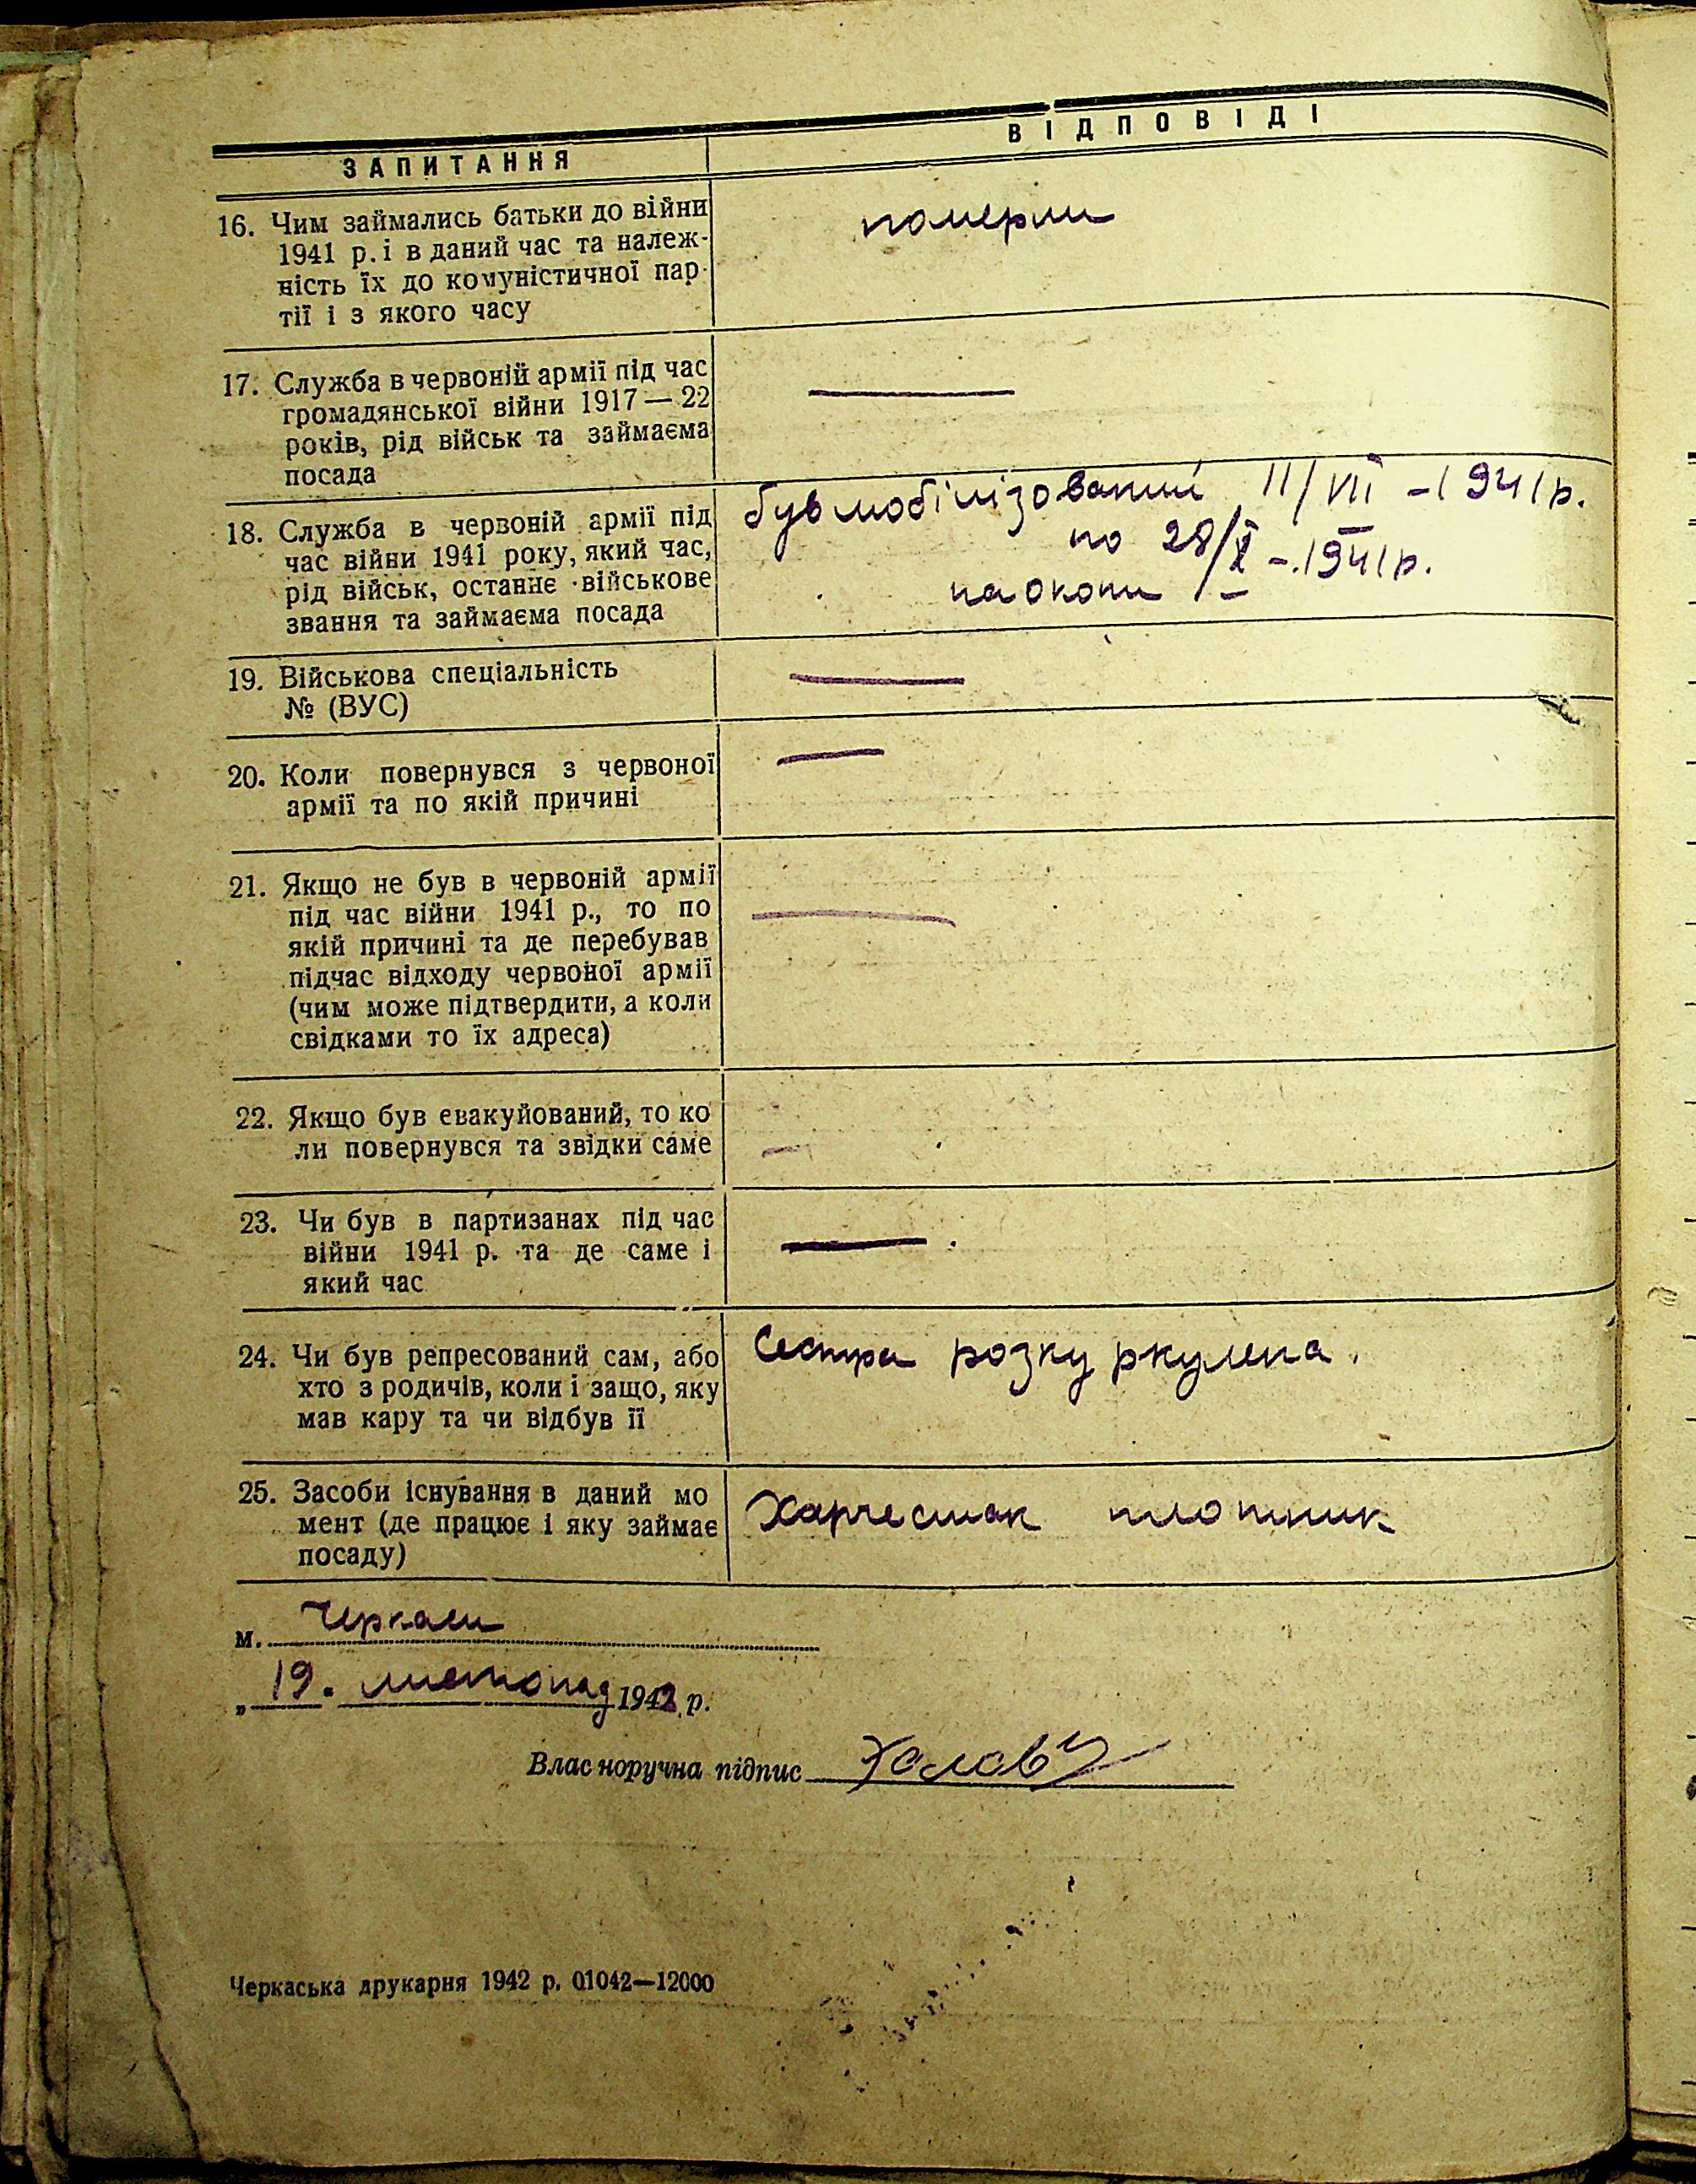 ЗАПИТАННЯ
ВІДПОВІДІ
16. Чим займались батьки до війни
1941 р. і в даний час та належ-
ність їх до комуністичної пар-
тії і з якого часу
померли
17. Служба в червоній армії під час
громадянської війни 1917 — 22
років, рід військ та займаєма
посада
18. Служба в червоній армії під
час війни 1941 року, який час,
рід військ, останнє військове
звання та займаєма посада
був мобілізований 11/VII - 1941 р.
по 28/X - 1941 р.
на окопи
19. Військова спеціальність
№ (ВУС)
20. Коли повернувся з червоної
армії та по якій причині
21. Якщо не був в червоній армії
під час війни 1941 р., то по
якій причині та де перебував
підчас відходу червоної армії
(чим може підтвердити, а коли
свідками то їх адреса)
22. Якщо був евакуйований, то ко
ли повернувся та звідки саме
23. Чи був в партизанах під час
війни 1941 р. та де саме і
який час
24. Чи був репресований сам, або
хто з родичів, коли і защо, яку
мав кару та чи відбув її
Сестра розкуркулена.
25. Засоби існування в даний мо
мент (де працює і яку займає
посаду)
Харчесмак плотник
м. Черкаси
„ 19. листопад 1942 р.
Власноручна підпис
Черкаська друкарня 1942 р. 01042—12000